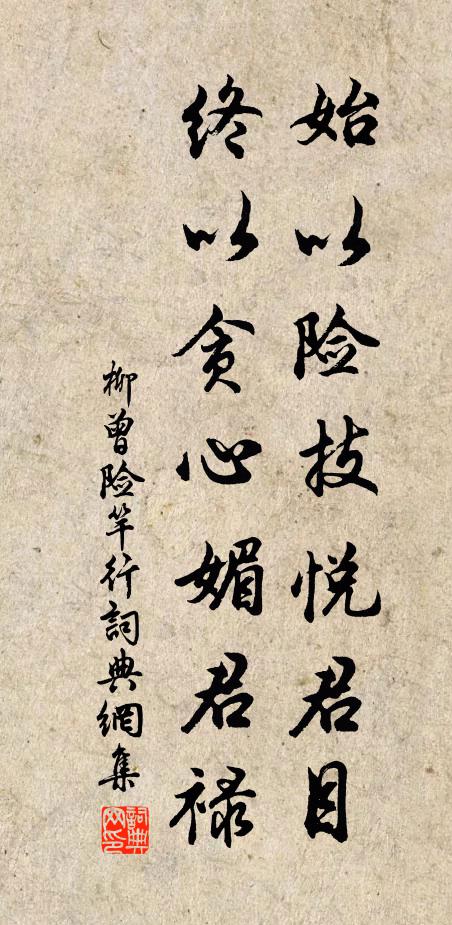 始以险技悦君目
终以贪心媚君禄
柳曾险竿行詞典網集
詞典网印